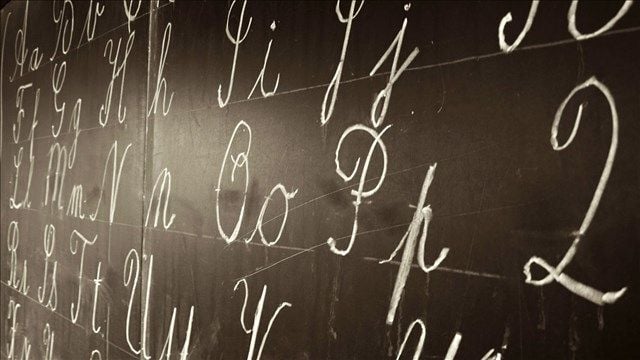 Aa Bb
Ff Gg H h I i J j
Ll Mm N n O o P p Q
Rr Ss Tt U u V